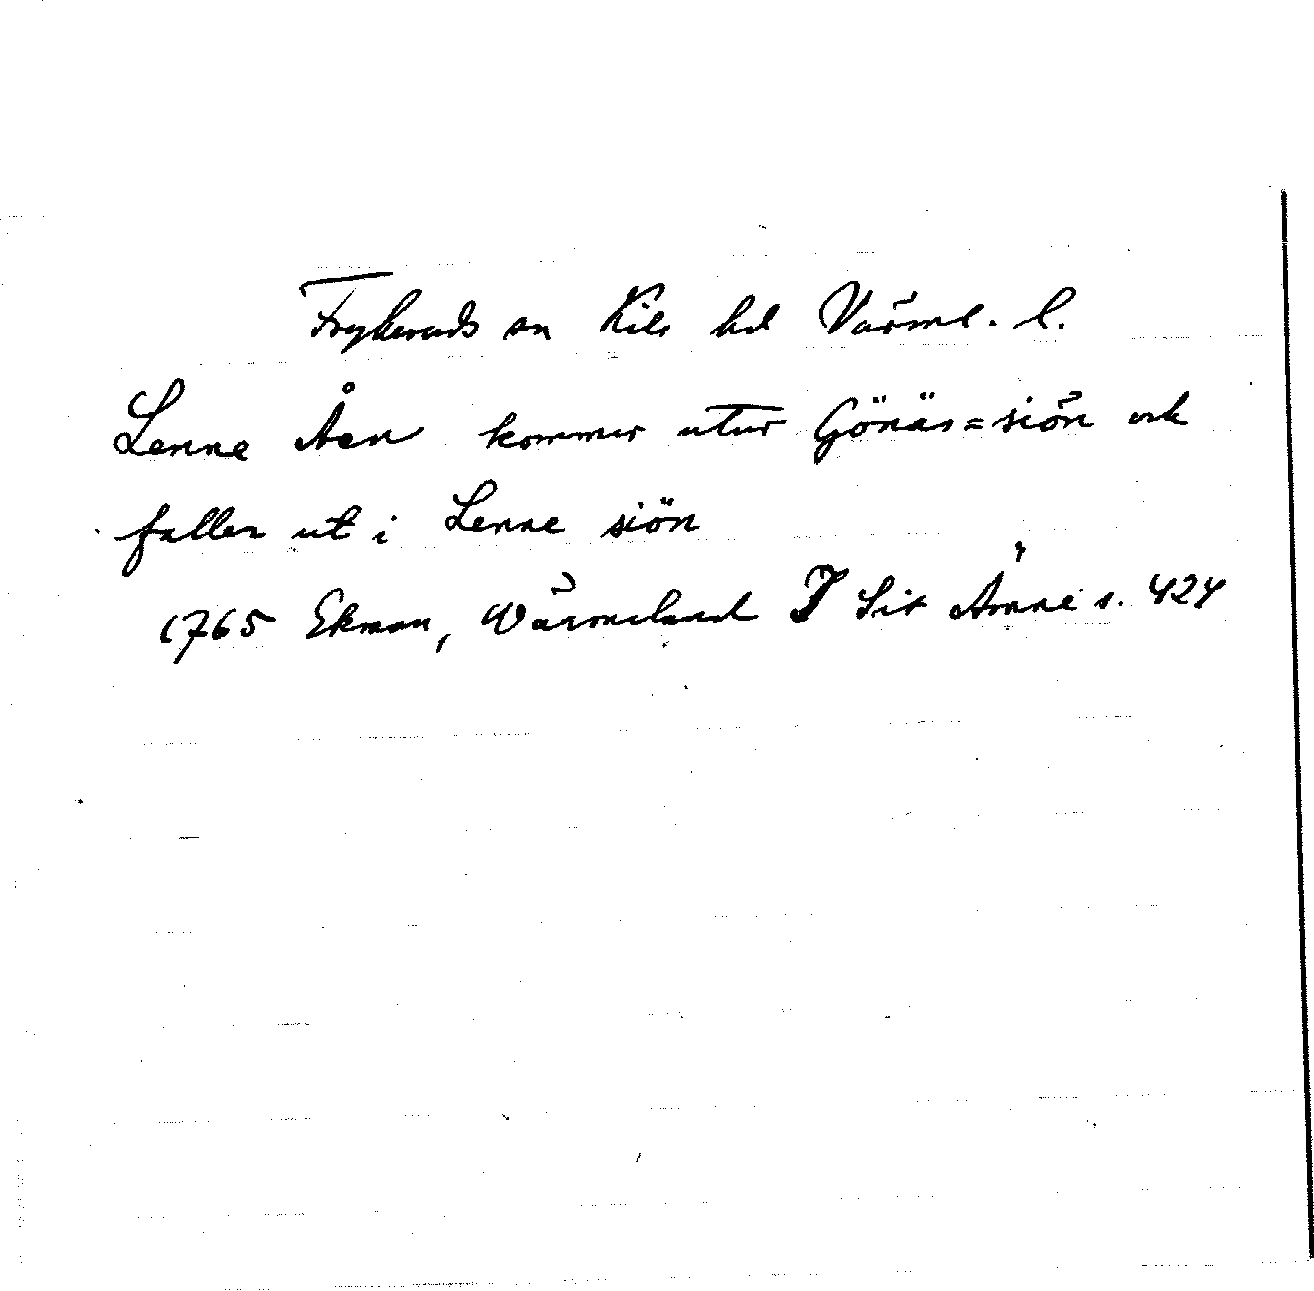 Frykeruds sn Kils hd Värml. l.
Lenne Åen kommer utur Gönäs=siön och
faller ut i Lenne siön
1765 Ekman, Wärmeland I Sit Ämne s. 424